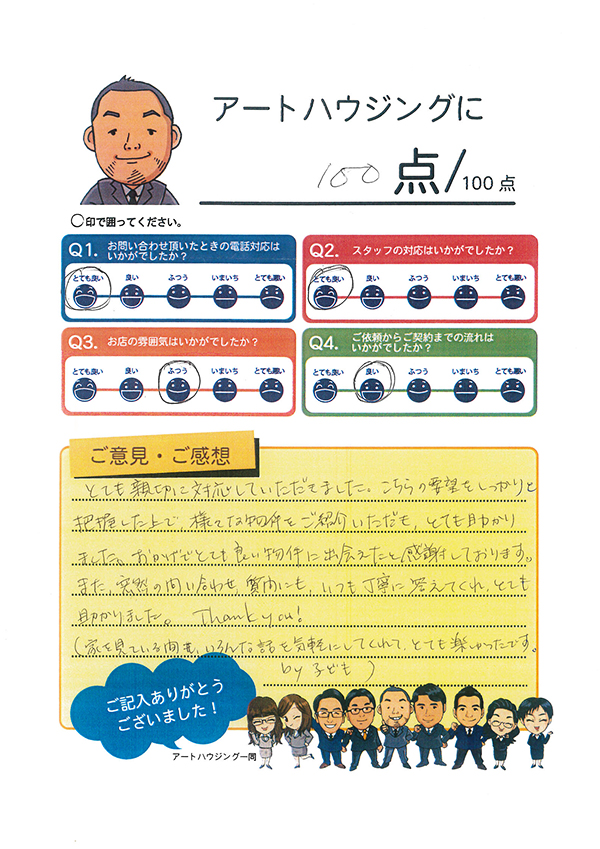 アートハウジングに
100 点/100点
○印で囲ってください。
Q1. お問い合わせ頂いたときの電話対応は
いかがでしたか?
とても良い 良い ふつう いまいち とても悪い
Q2. スタッフの対応はいかがでしたか?
とても良い 良い ふつう いまいち とても悪い
Q3. お店の雰囲気はいかがでしたか?
とても良い 良い ふつう いまいち とても悪い
Q4. ご依頼からご契約までの流れは
いかがでしたか?
とても良い 良い ふつう いまいち とても悪い
ご意見・ご感想
とても親切に対応していただきました。こちらの要望をしっかりと
把握した上で、様々な物件をご紹介いただき、とても助かり
ました。おかげでとても良い物件に出会えたと感謝しております。
また、突然の問い合わせ、質問にも、いつも丁寧に答えてくれ、とても
助かりました。 Thank you!
(家を見ている間も、いろんな話を気軽にしてくれて、とても楽しかったです。
by 子ども)
ご記入ありがとう
ございました!
アートハウジング一同